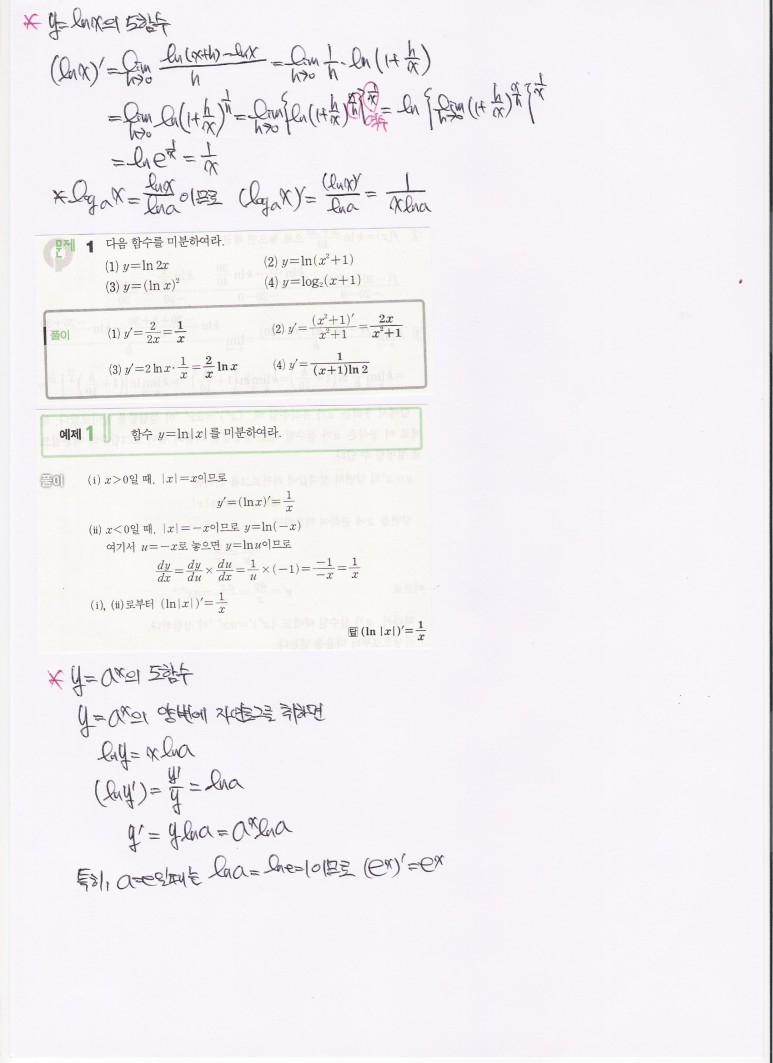 * y=lnx의 도함수
(lnx)'=lim h→0 ln(x+h)-lnx/h = lim h→0 1/h · ln(1+h/x)
=lim h→0 ln(1+h/x)^1/h = lim h→0 {ln(1+h/x)^x/h}^1/x = ln {lim h→0 (1+h/x)^x/h}^1/x
역수
=ln e^1/x = 1/x
* log_a x = lnx/lna 이므로 (log_a x)' = (lnx)'/lna = 1/xlna
문제 1 다음 함수를 미분하여라.
(1) y=ln 2x (2) y=ln(x²+1)
(3) y=(ln x)² (4) y=log₂(x+1)
풀이 (1) y'=2/2x=1/x (2) y'=(x²+1)'/x²+1=2x/x²+1
(3) y'=2 ln x·1/x=2/x ln x (4) y'=1/(x+1)ln 2
예제 1 함수 y=ln|x|를 미분하여라.
풀이 (i) x>0일 때, |x|=x이므로
y'=(ln x)'=1/x
(ii) x<0일 때, |x|=-x이므로 y=ln(-x)
여기서 u=-x로 놓으면 y=ln u이므로
dy/dx=dy/du×du/dx=1/u×(-1)=-1/-x=1/x
(i), (ii)로부터 (ln|x|)'=1/x
답 (ln |x|)'=1/x
* y=a^x의 도함수
y=a^x의 양변에 자연로그를 취하면
lny=xlna
(lny') = y'/y = lna
y' = ylna = a^x lna
특히, a=e일때는 lna = lne=1이므로 (e^x)'=e^x